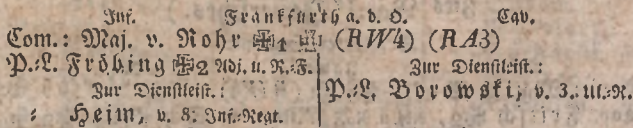 Inf. Frankfurth a. d. O. Cav.
Com.: Maj. v. Rohr ✠1 ✠ (RW4) (RA3)
P.-L. Fröhing ✠2 Adj. u. R.-F.
Zur Dienstleist.:
: Heim, v. 8. Inf.-Regt.
Zur Dienstleist.:
P.-L. Borowski, v. 3. Ul.-R.